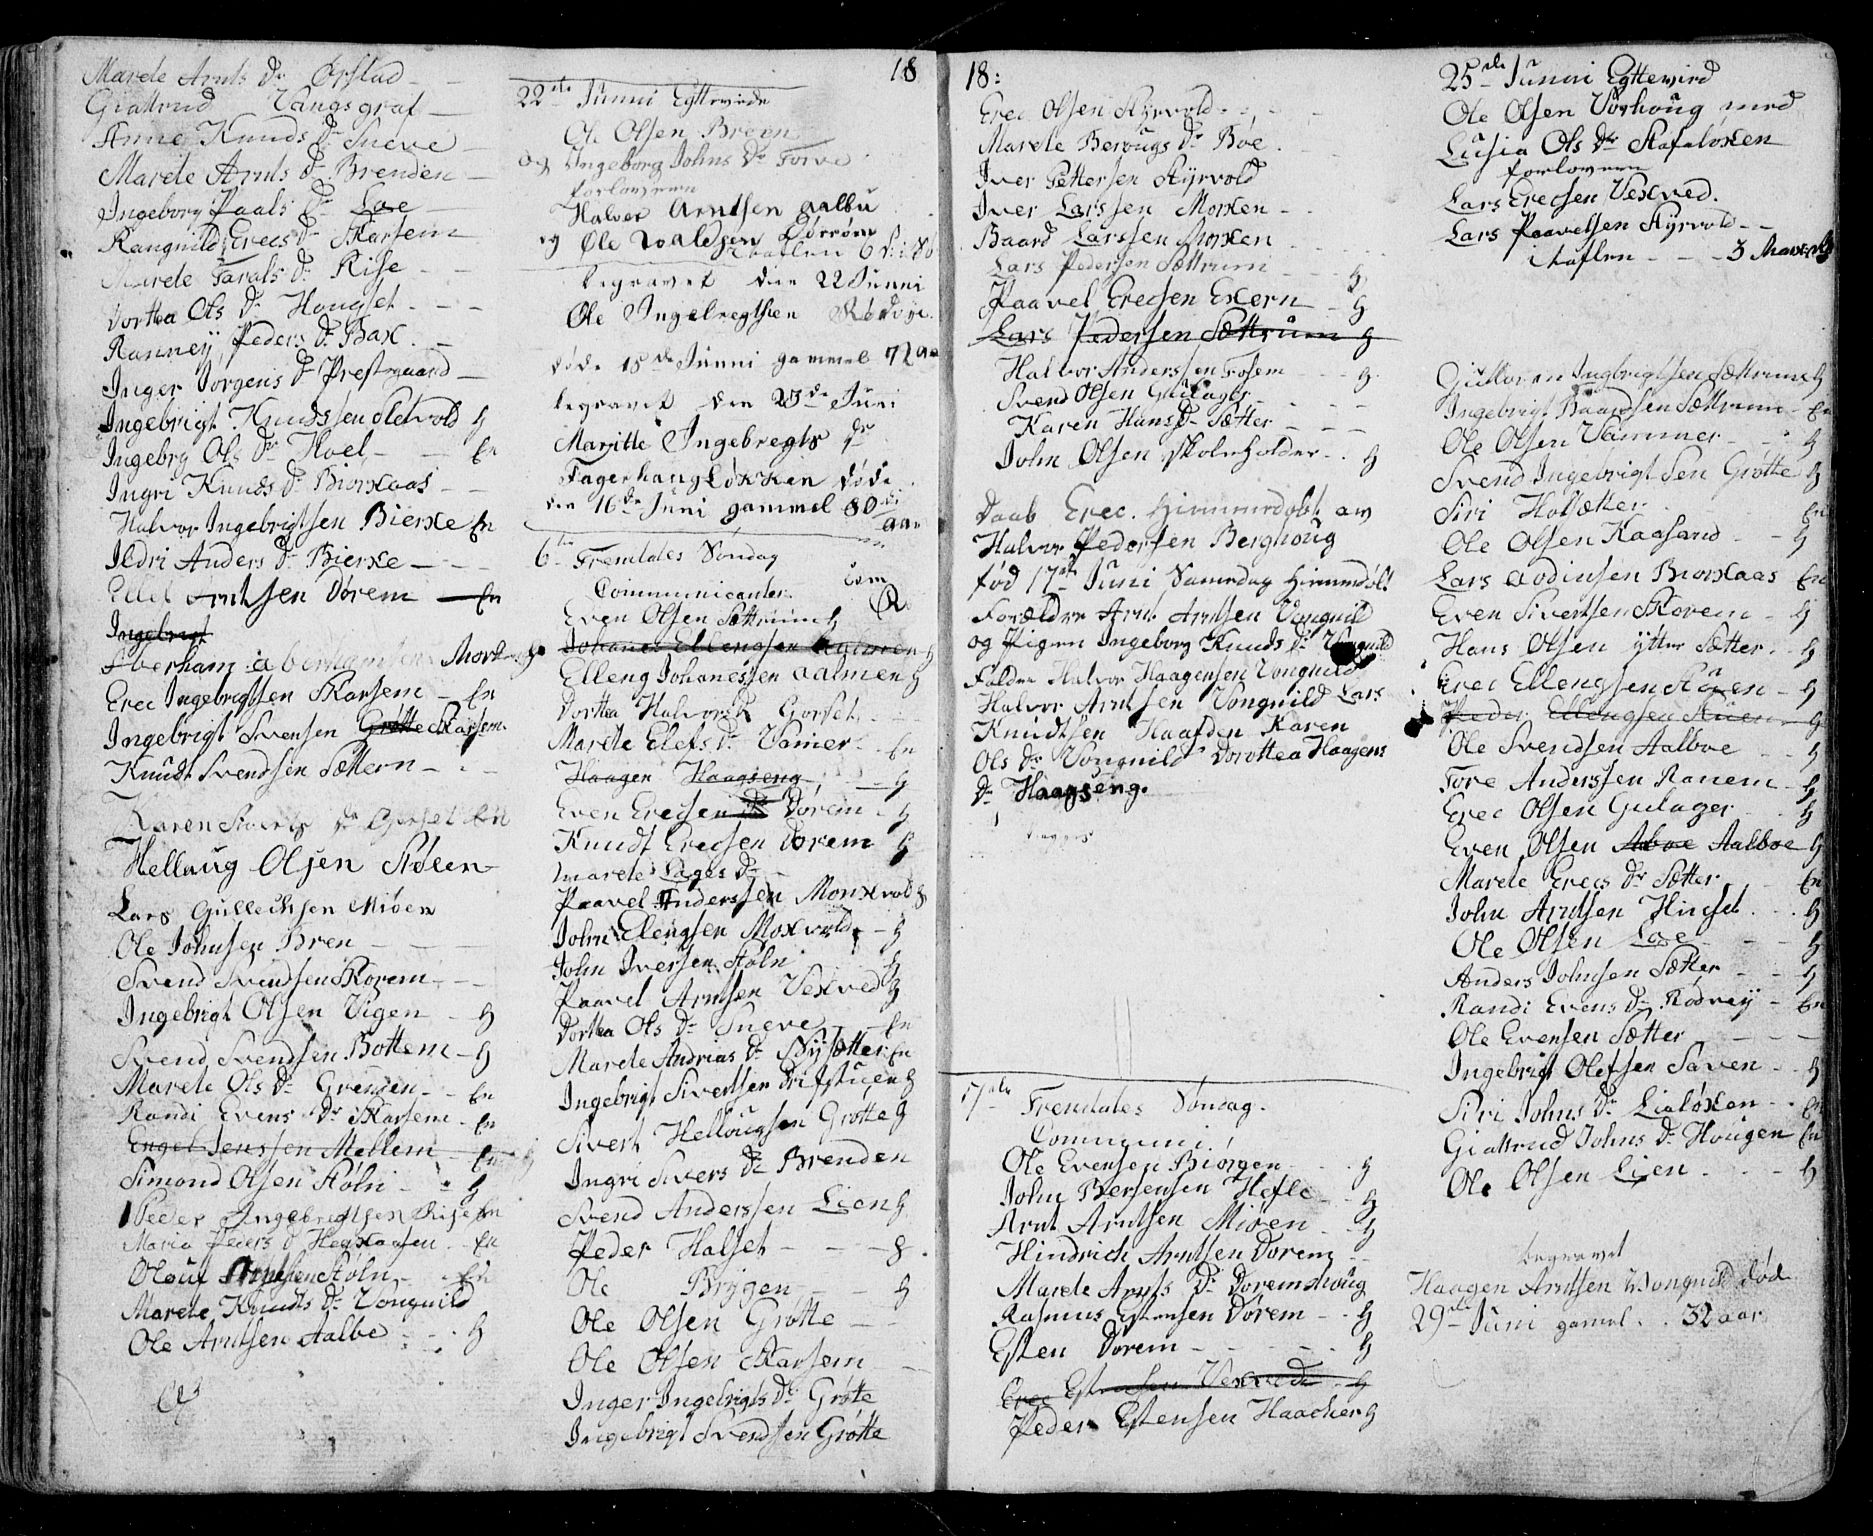 Marete Arnts Dr Ørstad
Giattrud Vangsgraf
Anne Knuds Dr Sneve
Marete Arnts Dr Brenden
Ingeborg Paals Dr Loe
Rangnild Erecs Dr Skarsem
Marete Tarals Dr Rise
Dorthea Ols Dr Hougset
Ranney Peders Dr Bax
Inger Jorgens Dr Prestgaard
Ingebrigt Knudssen Sletvold H
Ingebrg Ols Dr Hoel En
Ingri Knuds Dr Biorxaas
Halvor Ingebrigtsen Bierxe En
Sidri Anders Dr Bierxe
Ellef Arntsen Dørem En
Ingebrigt
Aberham aberhamsen H
Erec Ingebrigtsen Skarsem En
Ingebrigt Svensen Grøtte Skarsem
Knudt Svendsen Sættern
Karen Siverts Dr En
Hellaug Olsen Støen
Lars Gullechsen Miøen
Ole Johnsen Bren
Svend Svendsen Skorem
Ingebrigt Olsen Vigen H
Svend Svendsen Bottem H
Marete Ols Dr Grenden En
Randi Evens Dr Skarsem En
Engel Jenssen Mellem En
Simond Olsen Støln H
Peder Ingebrigtsen Rise En
Maria Peders D En
Olouf Arntsen Støln En
Marete Knudts Dr Vongnild
Ole Arntsen Aalbe H
18
22de Junni Egttevirde
Ole Olsen Breen
og Ingeborg Johns Dr Torve
forlovern
Halvor Arntsen aalbu
og Ole
begravet den 22 Junni
Ole Ingebregtsen
døde 18de Junni gammel 72 aar
begravet den 23de Juni
Maritte Ingebregts dr
Fagerhaugløkken døde
den 16de Juni gammel 80
aar
6te Fremtales Søndag
Communicanter
Even Olsen Sættrum H
Johanes Ellengsen H
Elleng Johanessen aalmen H
Dorthea Halvors D Gorset
Marete Elefs Dr Vamer En
Haagen Haagseng H
Even Erecsen Dørem H
Knudt Erecsen Dorem H
Marete Lages Dr
Paavel Anderssen Monxvold H
John Elengsen Moxvold H
John Iversen Støln H
Paavel Arntsen Vexved H
Dorthea Ols Dr Sneve En
Marete Andrias Dr Nysætter En
Ingebrigt Sivertsen Drifstuen H
Sivert Hellougsen Grøtte H
Ingri Sivers Dr Brenden
Svend Anderssen Lien H
Peder Halset H
Ole Bryggen H
Ole Olsen Grøtte
Ole Olsen Skarsem
Inger Ingebrigts Dr Grøtte
Ingebrigt Svendsen Grøtte
18:
Erec Olsen Styrvold
Marete Berougs Dr Boe
Iver Pettersen Styrvold
Iver Larssen Morxen
Baard Larssen Morxen
Lars Pedersen Sættrum H
Paavel Erecsen Exern H
Lars Pedersen Sættrum H
Halvor Anderssen Fosem H
Svend Olsen Gulager
Karen Hans Dr Sætter
John Olsen skoleholder H
Daab Erec. Himmedøbt av
Halvor Pedersen Berghoug
fød 17de Juni Samedag himmedøbt
Forældre Arnt Arntsen Vongnild
og Pigen Ingeborg Knuds Dr Vongnild
Faddre Halvor Haagensen Vongnild
Halvor Arntsen Vongnild Lars
Knudtsen Haafden Karen
Ols Dr Vongnild Dorottea Haagens
Dr Haagseng.
17de Fremtales Søndag.
Communi
Ole Evensen Biorgen H
John Bersensen Hefle H
Arnt Arntsen Miøen H
Hindrich Arntsen Dorem
Marete Arnts Dr Doremshoug
Rasmus Estensen Dørem H
Esten Dorem H
Erec Estensen Vexvede H
Peder Estensen Haacker H
25de Junni Egttevird
Ole Olsen Vorhoug med
Lusia Ols Dr Stafaløxen
forlovern
Lars Erecsen Vexved.
Lars Paavelsen Styrvold
3
Gulloren Ingbrigtsen Sættrum H
Ingebrigt Baardsen Sættrum En
Ole Olsen Vammer H
Svend Ingebrigtsen Grøtte H
Siri Holsætter En
Ole Olsen Kaasand H
Lars aadinsen Biorxaas En
Even Sivertsen Skorem H
Hans Olsen ytter Sætter H
Erec Ellengsen H
Peder Ellengsen Stuen H
Ole Svendsen Aalboe H
Tore Anderssen Ranem H
Erec Olsen Gulager H
Even Olsen Aboe Aalboe H
Marete Erecs Dr Sætter En
John Arntsen Hindset H
Ole Olsen Loe H
Anders Johnsen Sætter H
Randi Evens Dr Rødvey En
Ole Evensen Sætter
Ingebrigt Olefsen Saven H
Siri Johns Dr Lieløxen En
Giattrud Johns Dr Hougen En
Ole Olsen Lien H
begravet
Haagen Arntsen Vongnild død
29de Juni gamel 32 aar